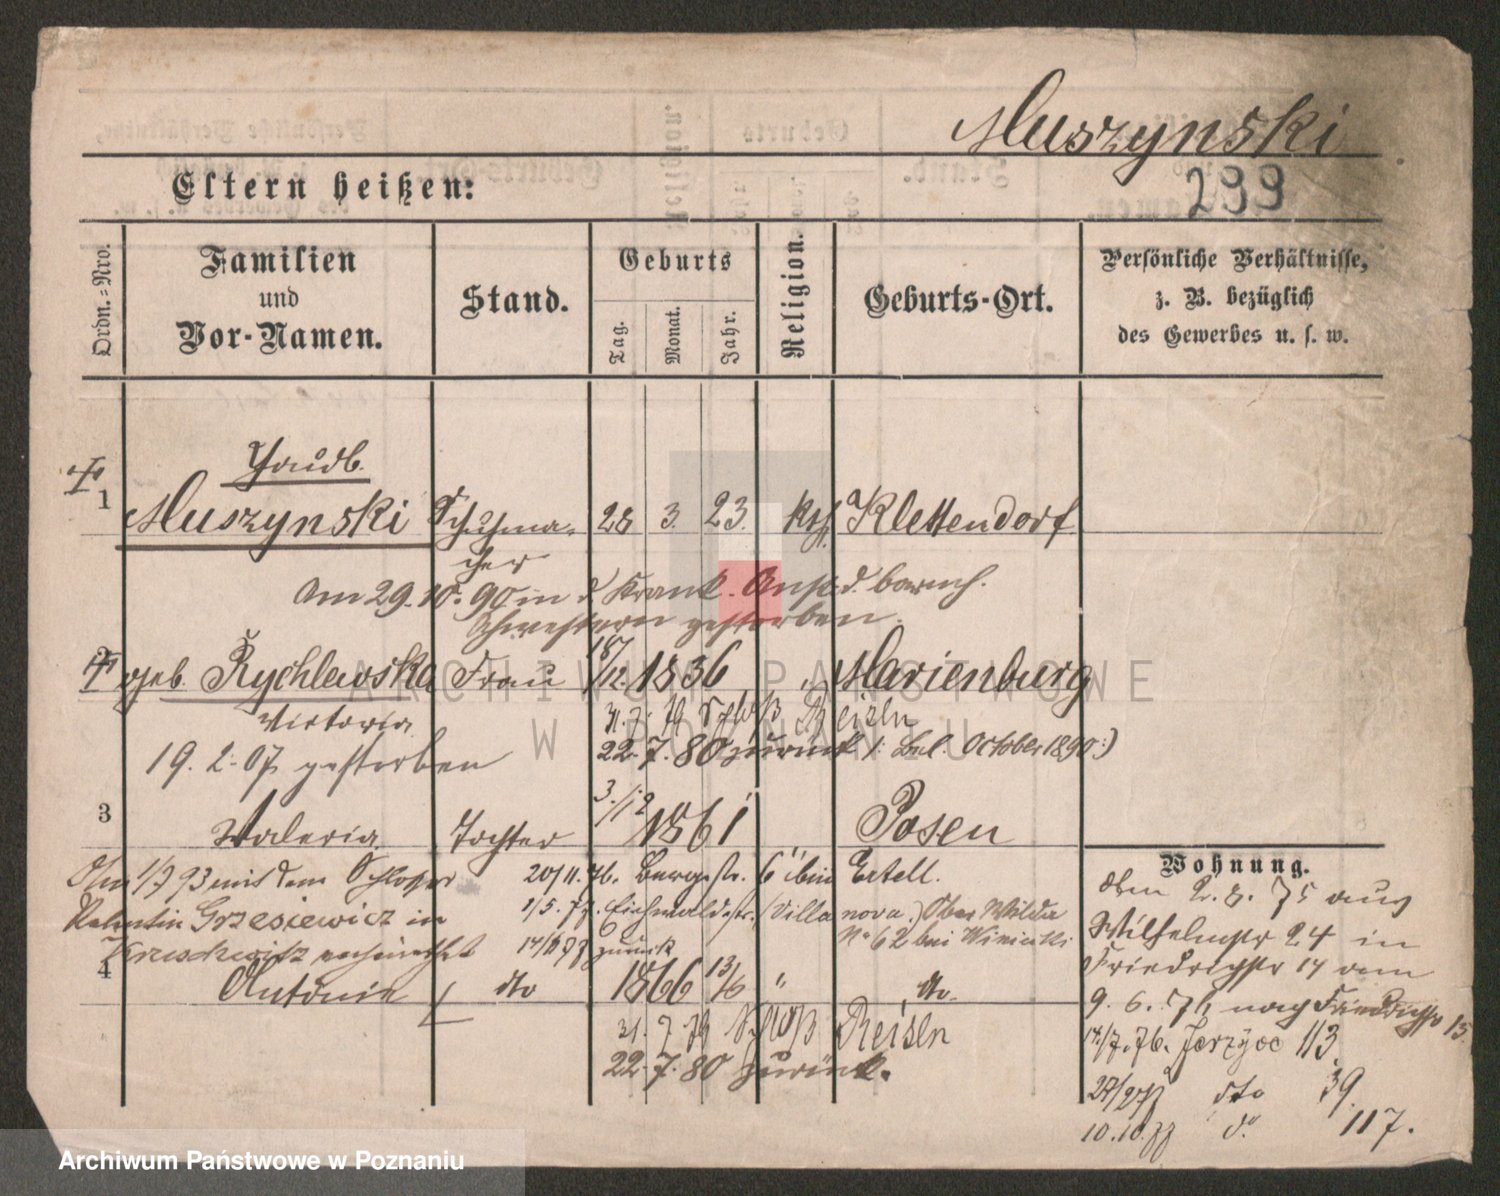 Muszynski
Eltern heißen:
299
Ordn.-Nro.
Familien und Vor-Namen.
Stand.
Geburts
Tag.
Monat.
Jahr.
Religion.
Geburts-Ort.
Persönliche Verhältnisse,
z. B. bezüglich
des Gewerbes u. s. w.
1
Muszynski Schuhma- 28 3. 23. kth Klettendorf
cher
Am 29.10.90 in d. Krank. Anst. d. barmh.
Schwestern gestorben.
2
geb. Rychlewska Frau 18/12. 1836 " Marienburg
Victoria
31. 7. 78 Schloß Reisen
19. 2. 07 gestorben
22.7.80 zurück (: Bel. October 1890 :)
3
Valeria Tochter 3./12 1861 " Posen
Am 1/7 93 mit dem Schlosser
Valentin Grzesiewicz in
Kruschwitz verheirathet
20/11. 76. Bergstr. 6 bei Ertell.
1/5. 77. Eichwaldstr. (Villa nova.) Ober Wilda
No 62 bei Winiecki
zurück
4
Antonie dto 1866 13/6 " dto.
31. 7. 78 Schloß Reisen
22.7.80 zurück.
Wohnung.
den 2. 8. 75 aus
Wilhelmstr 24 in
Friedrichstr 14 am
9. 6. 76 nach Friedrichstr 15
14./7. 76. Jerzyce 113
dto 39.
10.10.77 do 117.
ARCHIWUM PAŃSTWOWE
W POZNANIU
Archiwum Państwowe w Poznaniu